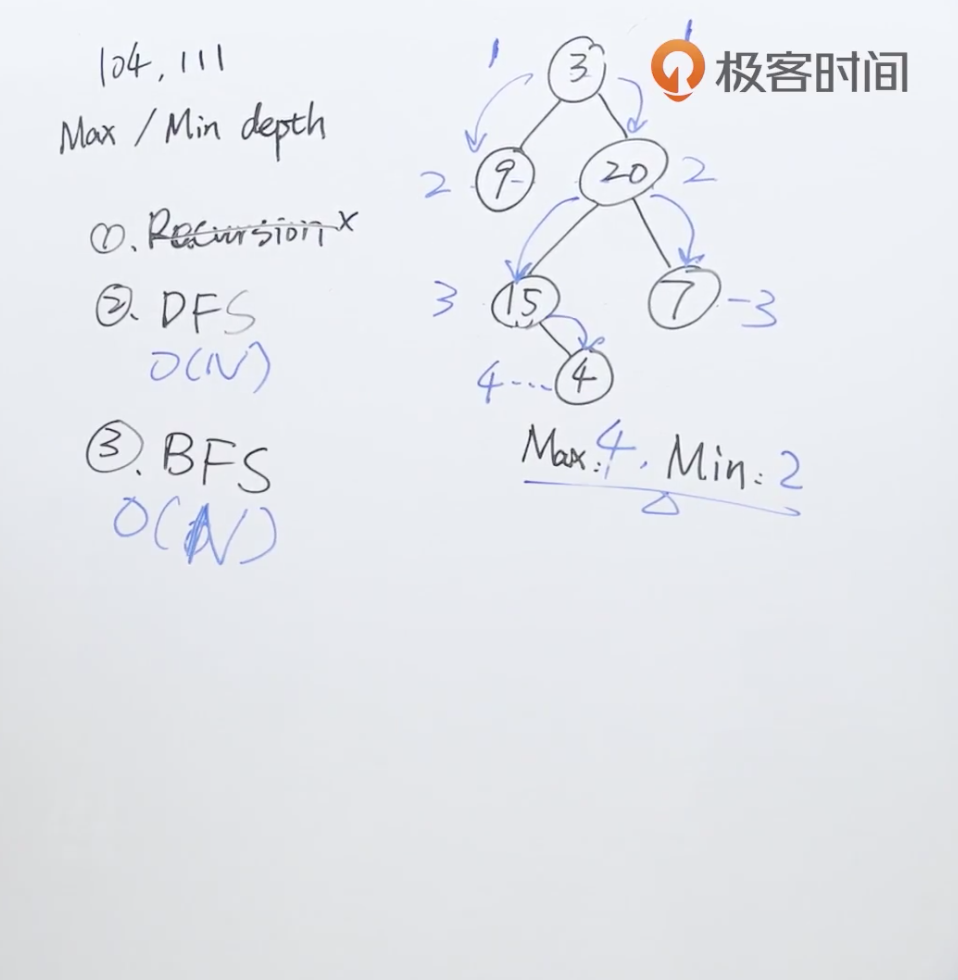 104, 111
Max / Min depth
①. Recursion x
②. DFS
O(N)
③. BFS
O(N)
1
1
3
极客时间
2
9
20
2
3
15
7
-3
4----
4
Max: 4, Min: 2